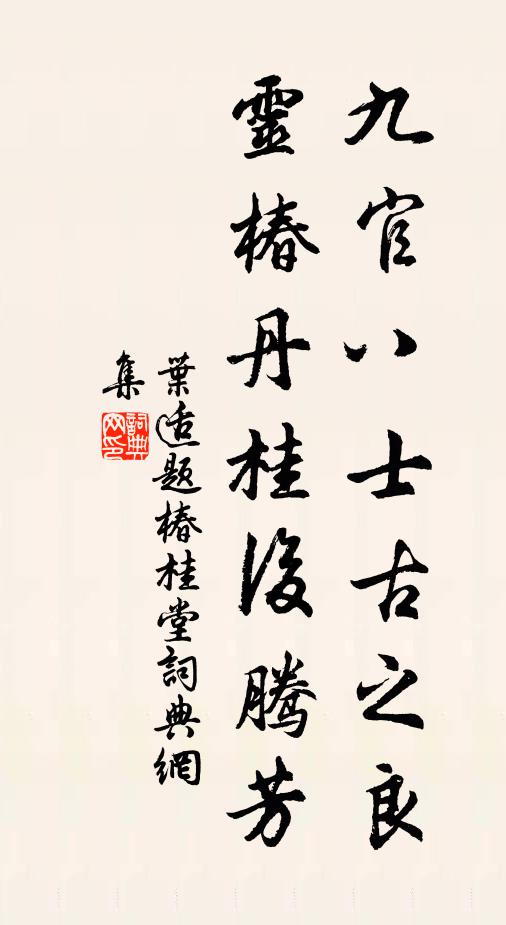 九官八士古之良
靈椿丹桂後騰芳
葉适題椿桂堂詞典網
集
詞典网印